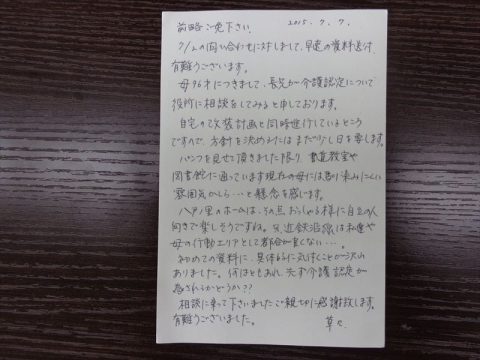 前略ご免下さい。 2015.7.7.
7/2の問い合わせに対しまして、早速の資料送付、
有難うございます。
母96才につきまして、長兄が介護認定について
役所に相談をしてみると申しております。
自宅の改装計画と同時進行しているところ
ですので、方針を決めるにはまだ少し日を要します。
パンフを見せて頂きました限り、書道教室や
図書館に通っています現在の母には馴染みにくい
雰囲気かしら…と懸念を感じます。
八戸ノ里のホームは、その点おっしゃる様に自立の人
向きで楽しそうですね。が、近鉄沿線は私達や
母の行動エリアとして都合が良くない…。
初めての資料に、具体的に気付くことが沢山
ありました。何はともあれ、先ず介護認定が
為されるかどうか??
相談に乗って下さいましたご親切に感謝致します。
有難うございました。
草々